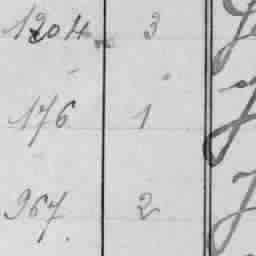 1204 3
176 1
967 2